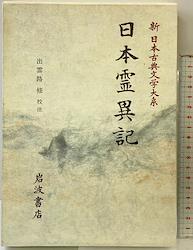 新日本古典文学大系
日本霊異記
出雲路 修 校注
岩波書店